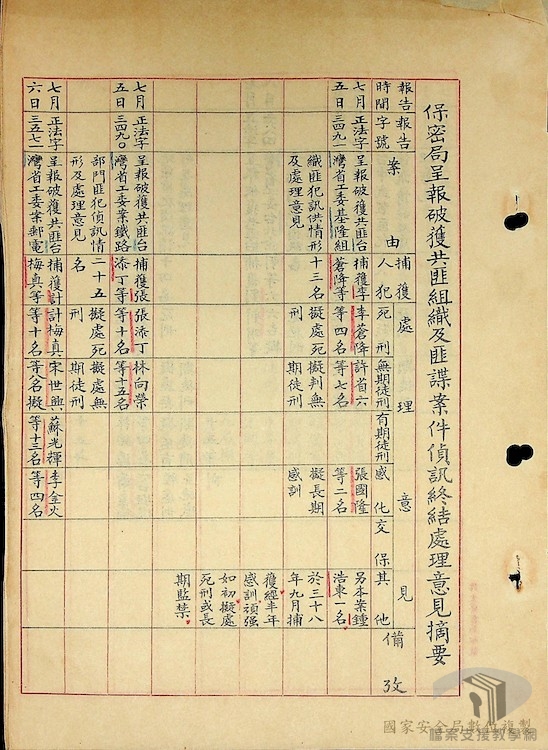 保密局呈報破獲共匪組織及匪諜案件偵訊終結處理意見摘要
報告
時間
報告
字號
案由
捕獲
人犯
處理意見
死刑
無期徒刑
有期徒刑
感化
交保
其他
備攷
七月
五日
正法字
三四九一
呈報破獲共匪台
灣省工委基隆組
織匪犯訊供情形
及處理意見
捕獲李
蒼降等
十三名
李蒼降
等四名
擬處死
刑
許省六
等七名
擬判無
期徒刑
張國隆
等二名
擬長期
感訓
另本案鍾
浩東一名
於三十八
年九月捕
獲經半年
感訓頑强
如初擬處
死刑或長
期監禁
七月
五日
正法字
三四九〇
呈報破獲共匪台
灣省工委案鐵路
部門匪犯偵訊情
形及處理意見
捕獲張
添丁等
二十五
名
張添丁
等十名
擬處死
刑
林向榮
等十五名
擬處無
期徒刑
七月
六日
正法字
三五七一
呈報破獲共匪台
灣省工委案郵電
捕獲計
梅真等
計梅真
等十名
宋世興
等八名擬
蘇光輝
等十三名
李金火
等四名
國家安全局數位複製
檔案支援教學網